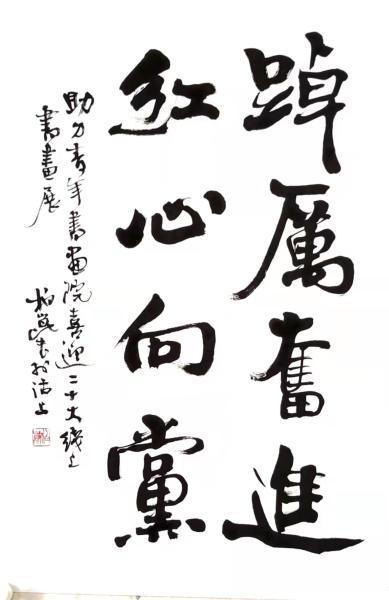 踔厲奮進
紅心向黨
助力青年書畫院喜迎二十大綫上
書畫展
柏 於沽上